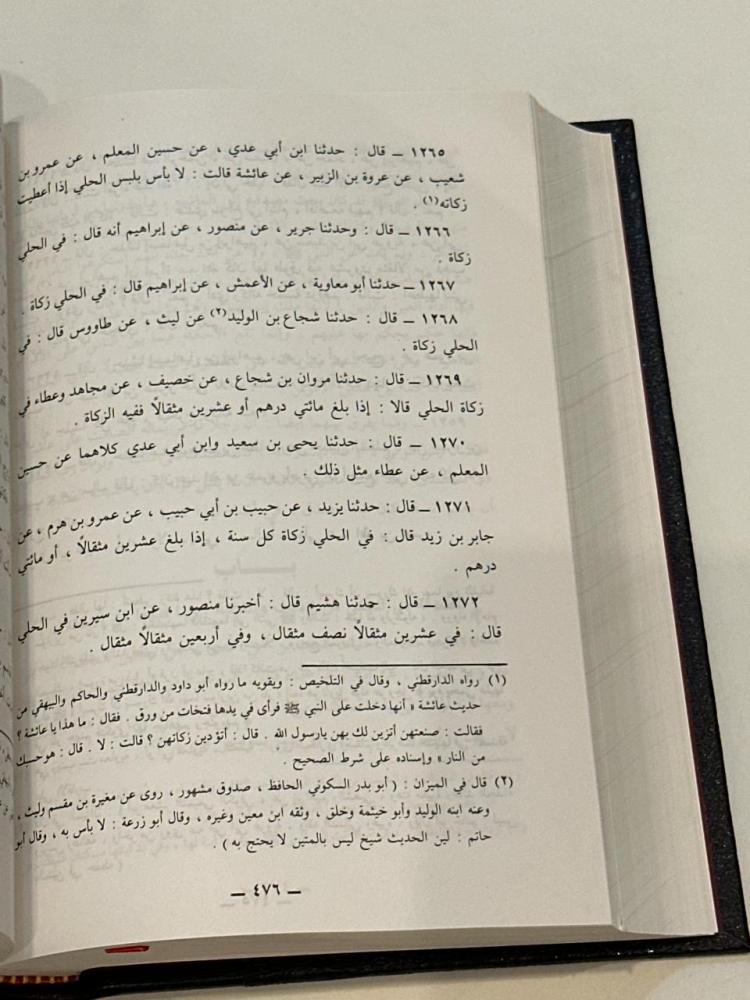 ١٢٦٥ ــ قال : حدثنا ابن أبي عدي ، عن حسين المعلم ، عن عمرو بن
شعيب ، عن عروة بن الزبير ، عن عائشة قالت : لا بأس بلبس الحلي إذا أعطيت
زكاته(١) .
١٢٦٦ ــ قال : وحدثنا جرير ، عن منصور ، عن إبراهيم أنه قال : في الحلي
زكاة .
١٢٦٧ ــ حدثنا أبو معاوية ، عن الأعمش ، عن إبراهيم قال : في الحلي زكاة .
١٢٦٨ ــ قال : حدثنا شجاع بن الوليد(٢) عن ليث ، عن طاووس قال : في
الحلي زكاة .
١٢٦٩ ــ قال : حدثنا مروان بن شجاع ، عن خصيف ، عن مجاهد وعطاء في
زكاة الحلي قالا : إذا بلغ مائتي درهم أو عشرين مثقالًا ففيه الزكاة .
١٢٧٠ ــ قال : حدثنا يحيى بن سعيد وابن أبي عدي كلاهما عن حسين
المعلم ، عن عطاء مثل ذلك .
١٢٧١ ــ قال : حدثنا يزيد ، عن حبيب بن أبي حبيب ، عن عمرو بن هرم ، عن
جابر بن زيد قال : في الحلي زكاة كل سنة ، إذا بلغ عشرين مثقالًا ، أو مائتي
درهم .
١٢٧٢ ــ قال : حمدثنا هشيم قال : أخبرنا منصور ، عن ابن سيرين في الحلي
قال : في عشرين مثقالًا نصف مثقال ، وفي أربعين مثقالًا مثقال .
(١) رواه الدارقطني ، وقال في التلخيص : ويقويه ما رواه أبو داود والدارقطني والحاكم والبيهقي من
حديث عائشة « أنها دخلت على النبي ﷺ فرأى في يدها فتخات من ورق . فقال : ما هذا يا عائشة ؟
فقالت : صنعتهن أتزين لك بهن يارسول الله . قال : أتؤدين زكاتهن ؟ قالت : لا . قال : هو حسبك
من النار » وإسناده على شرط الصحيح .
(٢) قال في الميزان : ( أبو بدر السكوني الحافظ ، صدوق مشهور ، روى عن مغيرة بن مقسم وليث ،
وعنه ابنه الوليد وأبو خيثمة وخلق ، وثقه ابن معين وغيره ، وقال أبو زرعة : لا بأس به ، وقال أبو
حاتم : لين الحديث شيخ ليس بالمتين لا يحتج به ) .
ــ ٤٧٦ ــ